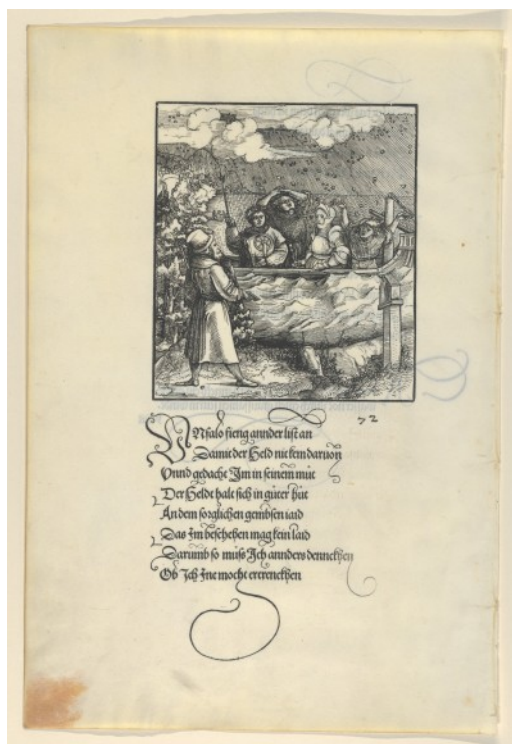 72
VNfalo fieng annder list an
Damit der Held nit kem daruon
Vnnd gedacht Im in seinem můt
Der Heldt halt sich in gůter hůt
An dem sorglichen gembsen iaid
Das Im beschehen mag kein laid
Darumb so muss Ich annders dennckhen
Ob Ich Ine mocht ertrenckhen